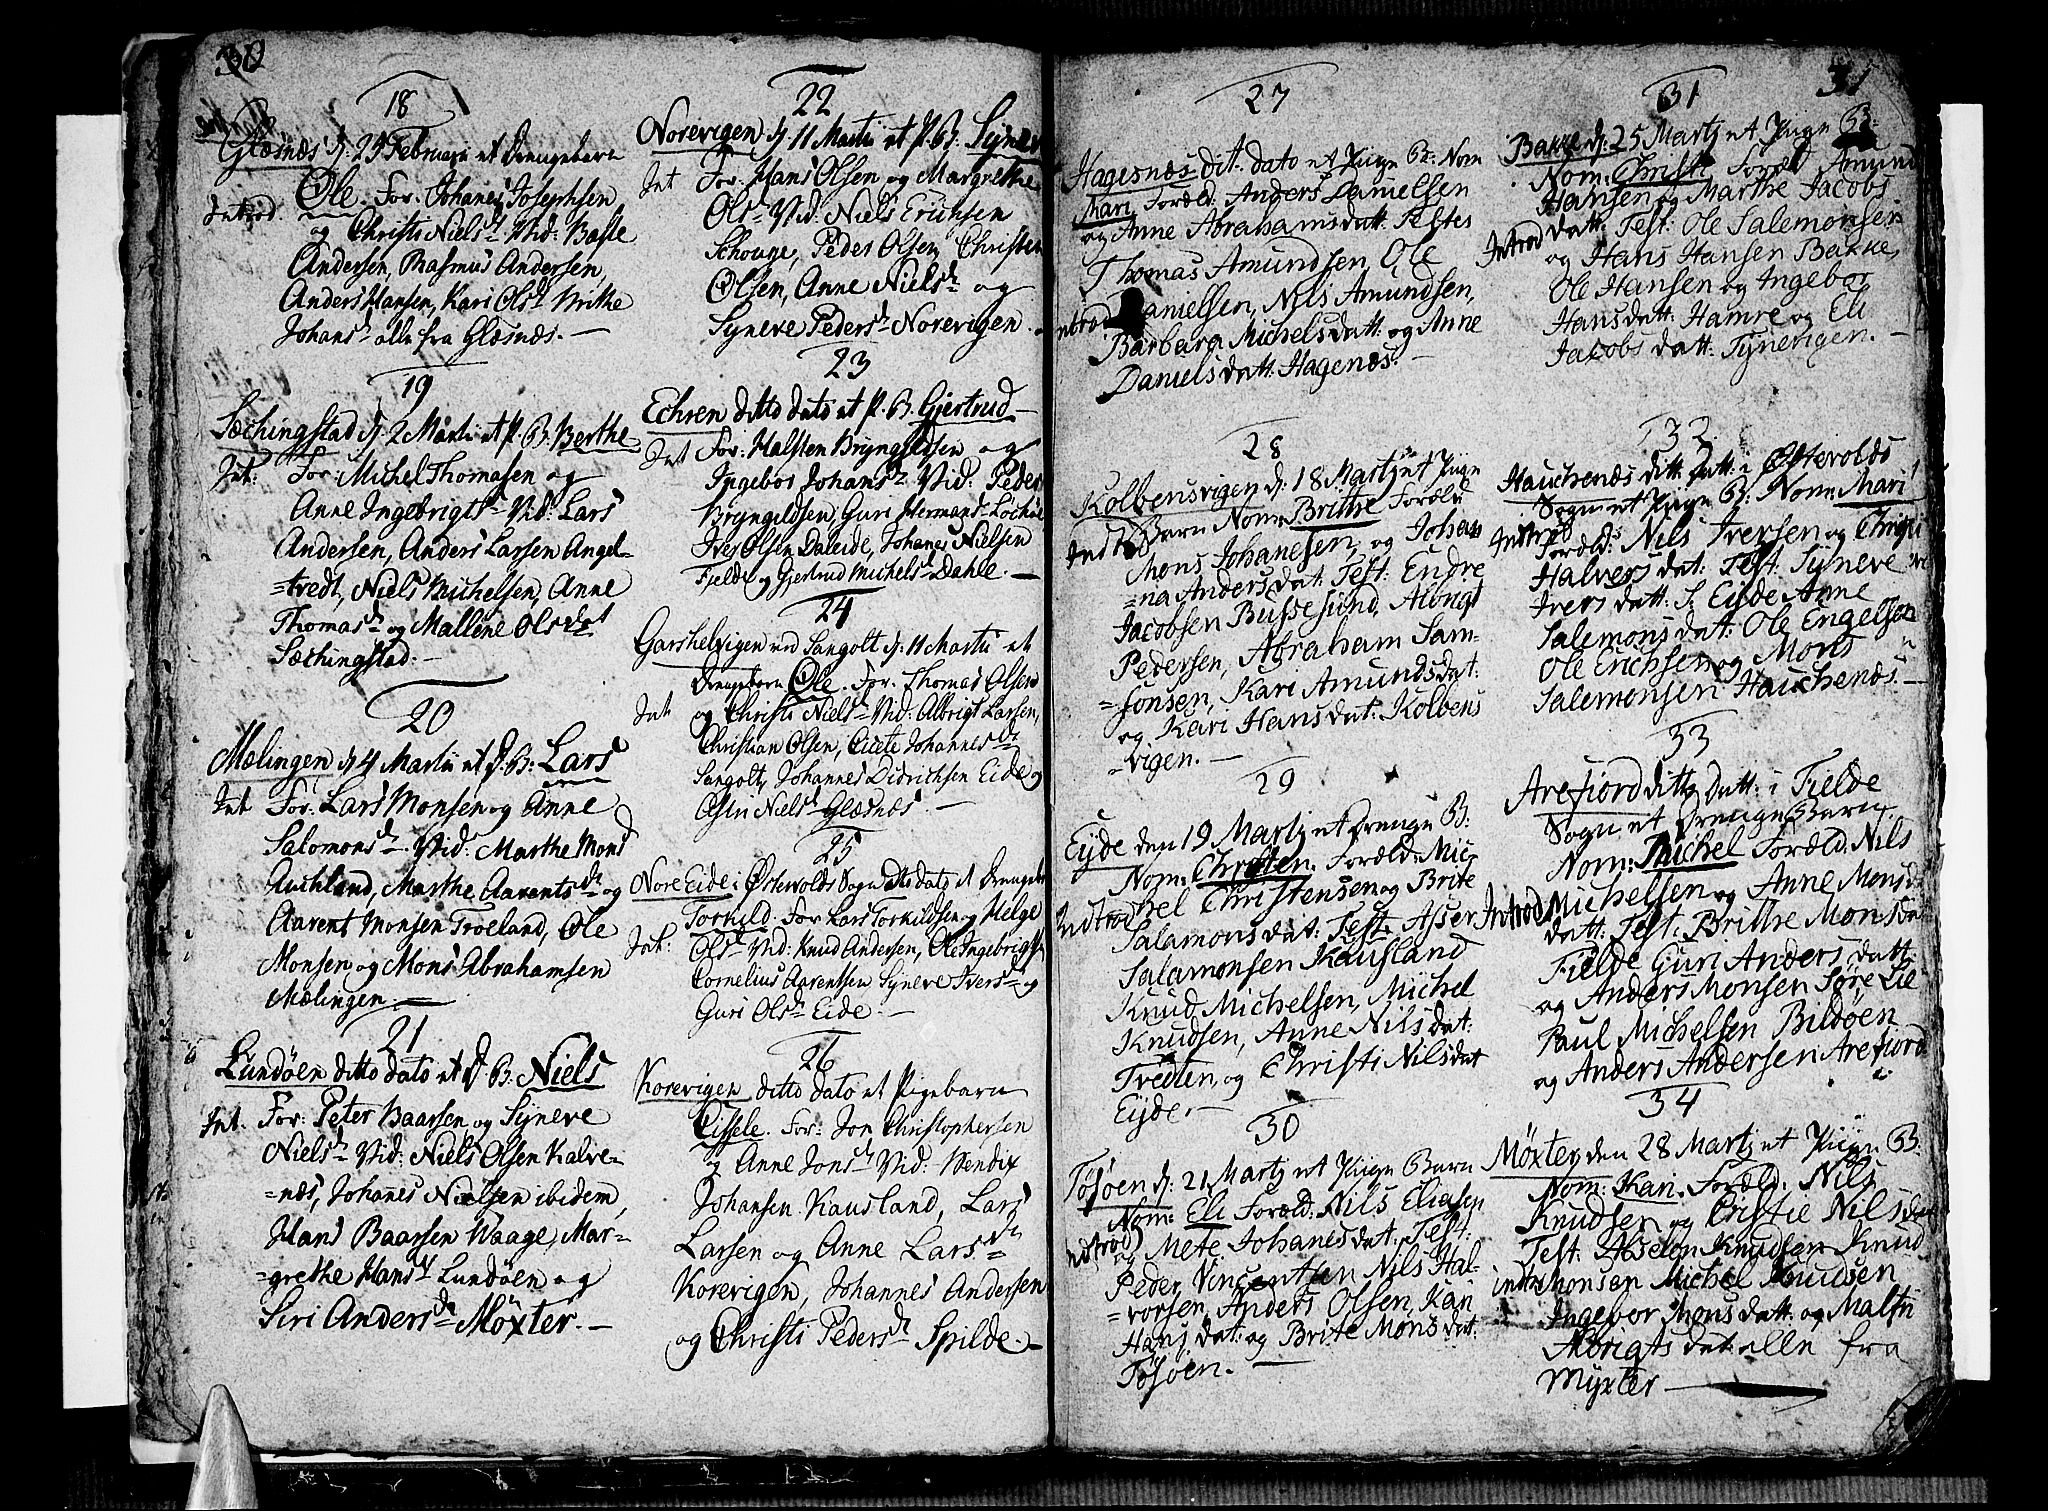 30
18
Glæsnæs d. 29 Februari et Drengebarn
Ole. For. Johanes Josephsen
Introd.
og Christi Nielsd. Vid: Basle
Andersen, Rasmus Andersen,
Anders Hansen, Kari Olsd. Brithe
Johansd. alle fra Glæsnæs. —
19
Sæchingstad d. 2 Martii et P. B. Berthe
Int. For: Michel Thomasen og
Anne Ingebrigtsd. Vid: Lars
Andersen, Anders Larsen Angel-
=tvedt, Niels Michelsen, Anne
Thomasd. og Mallene Olsdat
Sæchingstad. —
20
Mælingen d. 4 Martii et D. B: Lars
Int For: Lars Monsen og Anne
Salomonsd. Vid: Marthe Monsd
Auchland, Marthe Aarentsd. og
Aarent Monsen Troeland, Ole
Monsen og Mons Abrahamsen
Mælingen —
21
Lundøen ditto dato et D. B. Niels
Int. For: Peter Baarsen og Syneve
Nielsd. Vid: Niels Olsen Kalve-
=næs, Johanes Nielsen ibidem,
Hans Baarsen Waage, Mar-
=grethe Hansd. Lundøen og
Siri Andersd. Møxter. —
22
Norevigen d. 11 Martii et P. B. Syneve
Int For: Hans Olsen og Margrethe
Olsd. Vid: Niels Erichsen
Schouge, Peder Olsen, Christen
Olsen, Anne Nielsd. og
Syneve Pedersd. Norevigen. —
23
Echren ditto dato et P. B. Gjertrud —
Int For: Halsten Bryngeldsen og
Ingebor Johansd. Vid: Peder
Bryngeldsen, Guri Hermansd.
Iver Olsen Daleide, Johanes Nielsen
Fjelde og Gjertrud Michelsd. Dahle. —
24
Garshelvigen ved Sangolt d. 11 Martii et
Drengebarn Ole. For: Thomas Olsen
Int og Christi Nielsd. Vid: Albrigt Larsen,
Christian Olsen, Cicele Johannesd.
Sangolt, Johannes Didrichsen Eide og
Nielsd. Glæsnæs. —
25
Nore Eide i Østevolds Sogn dito dato et Drengebarn
Torkild. For Lars Torkildsen og Helge
Int: Olsd. Vid: Knud Andersen, Ole Ingebrigtsen
Cornelius Aarentsen Syneve Iversd. og
Guri Olsd. Eide. —
26
Korevigen ditto dato et Pigebarn
Cissele. For: Jon Christophersen
og Anne Jonsd. Vid: Hendix
Johansen Kausland, Lars
Larsen og Anne Larsd.
Korevigen, Johannes Andersen
og Christi Pedersd. Spilde. —
31
27
Hagesnæs dit: dato et Piige B: Nom
Mari Foræld: Anders Danielsen
og Anne Abrahamsdatt: Testes
Thomas Amundsen, Ole
Introd Danielssen, Nils Amundsen,
Barbara Michelsdatt: og Anne
Danielsdatt: Hagenæs. —
28
Kolbensvigen d: 18 Martz et Piige
Barn Nom: Brithe Foræld:
Indtrod Mons Johanesen, og Johan
=na Andersdat: Test: Endre
Jacobsen Bussesund, Mongs
Pedersen, Abraham Sam-
=sonsen, Kari Amundsdat:
og Kari Hansdat: Kolbens
=vigen. —
29
Eyde den 19 Martz et Drenge B:
Nom: Christen. Foræld: Mic
Indtrod hel Christensen og Brite
Salamonsdat: Test. Asser
Salamonsen Kausland
Knud Michelsen, Michel
Knudsen, Anne Nilsdat:
Tredten, og Christi Nilsdat
Eyde. —
30
Tøsøen d: 21 Martz et Piige Barn
Nom: Eli Foræld: Nils Eliasen
Indtrod og Mete Johanesdat: Test:
Peder Vincentsen Nils Hal-
=vorsen, Anders Olsen, Kari
Hansdat: og Brite Monsdat:
Tøsøen. —
31
Bakke d: 25 Martz et Piige B:
Nom: Christi Foræld Amund
Hansen og Marthe Jacobs
Introd datt: Test: Ole Salemonsen
og Hans Hansen Bakke,
Ole Hansen og Ingebor
Hansdatt: Hamre og Eli
Jacobsdatt: Tynevigen. —
32
Hauchenæs ditt datt: i Østevolds
Sogn et Piige B: Nom: Mari
Introd Foræld: Nils Iversen og Christi
Halversdat: Test: Syneve
Iversdatt: S. Eyde Anne
Salemonsdat: Ole Engelsen
Ole Erichsen og Mons
Salemonsen Hauchenæs. —
33
Arefiord ditt datt: i Fielde
Sogn et Drenge Barn
Nom: Michel Foræld: Nils
Introd Michelsen og Anne Mons
datt: Test: Brithe Monsdat
Fielde Guri Andersdatt:
og Anders Monsen Søre Lie
Paul Michelsen Bildøen
og Anders Andersen Arefiord
34
Møxter den 28 Martz et Piige B:
Nom: Kari. Foræld: Nils
Knudsen og Cristie Nilsdat
Test: Abselon Knudsen Knud
intr: Monsen Michel Knudsen
Ingebor Monsdatt: og Maltri
Albrigtsdat: alle fra
Myxter —